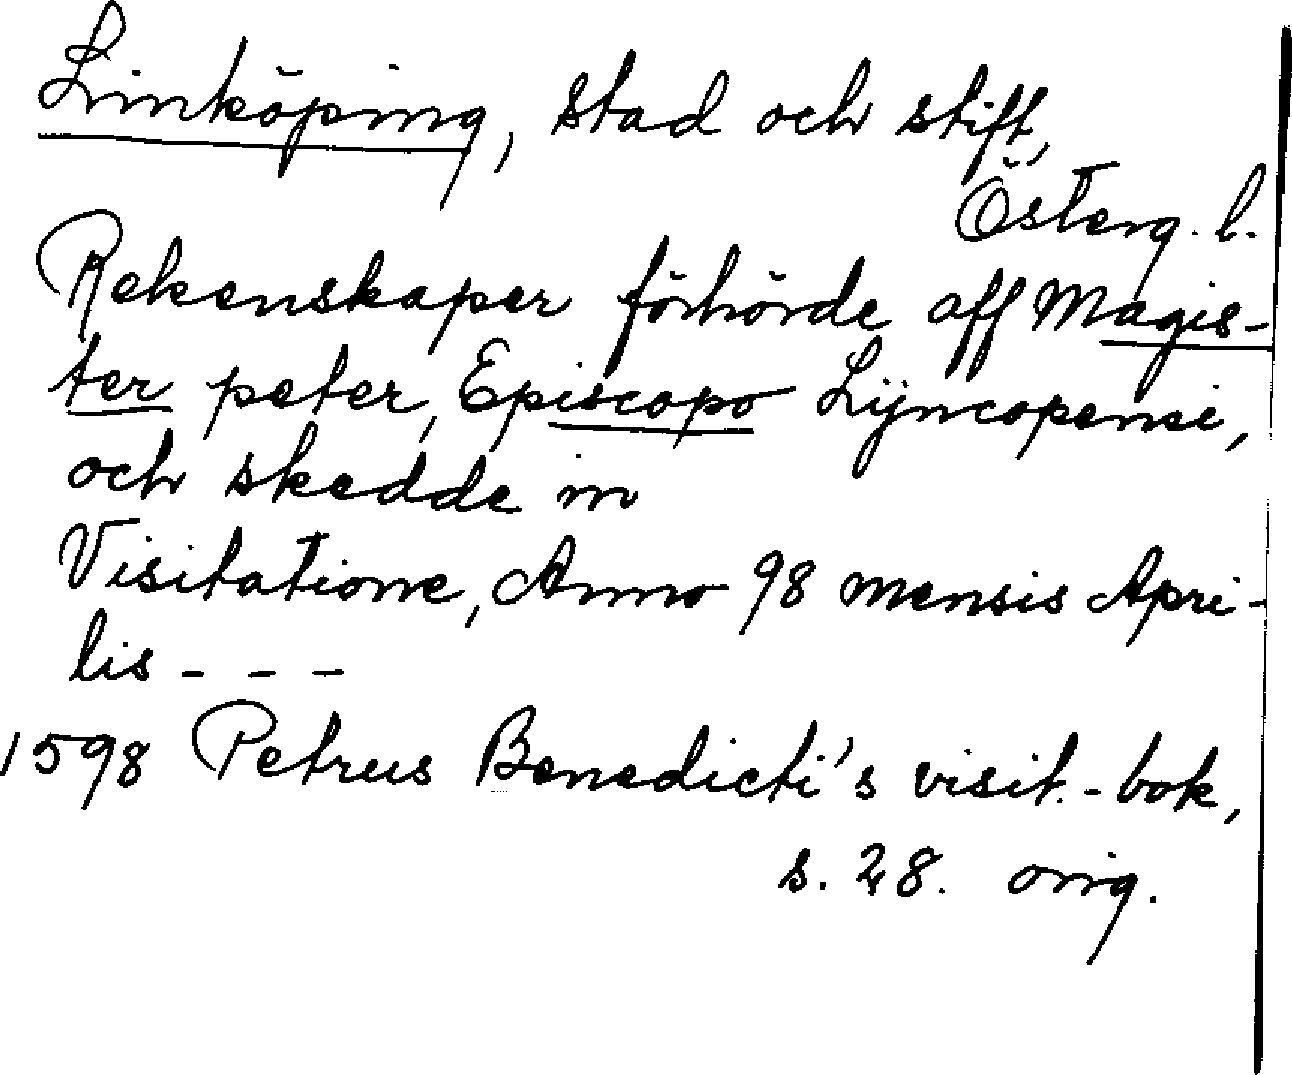 Linköping, stad och stift,
Österg. l.
Rekenskaper förhörde aff Magis-
ter peter, Episcopo Lÿncopensi,
och skedde in
Visitatione, Anno 98 mensis Apri-
lis - - -
1598 Petrus Benedicti's visit.-bok,
s. 28. orig.